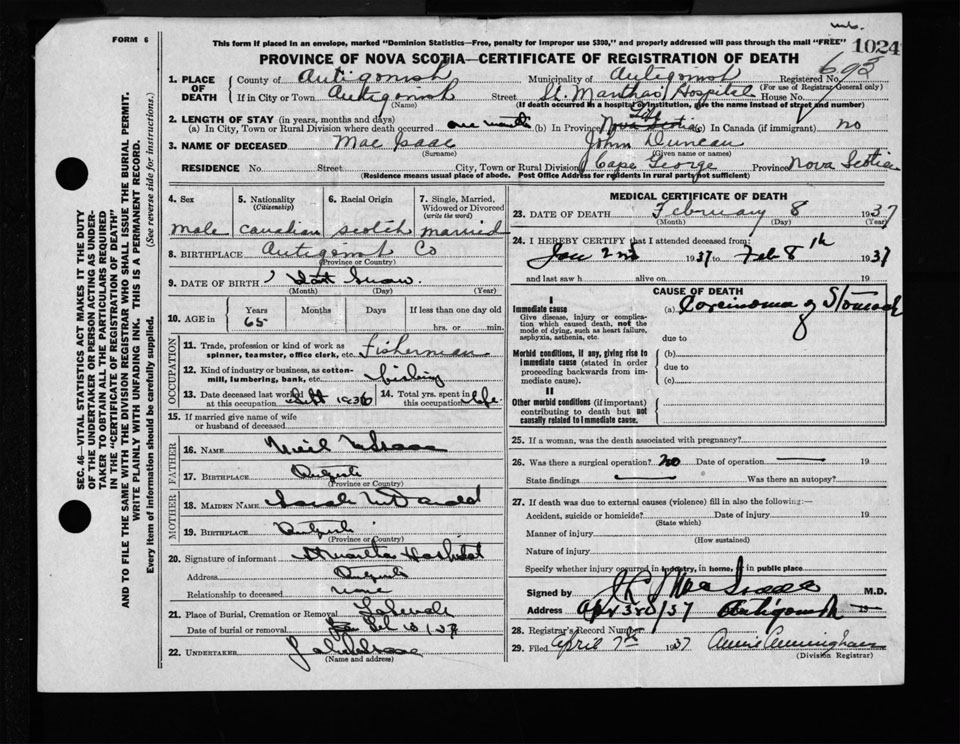 FORM 6
1024
This form if placed in an envelope, marked "Dominion Statistics—Free, penalty for improper use $300," and properly addressed will pass through the mail "FREE"
PROVINCE OF NOVA SCOTIA—CERTIFICATE OF REGISTRATION OF DEATH
693
1. PLACE OF DEATH County of Antigonish Municipality of Antigonish Registered No.
(For use of Registrar General only)
If in City or Town Antigonish Street St. Marthas Hospital House No.
(Name) (If death occurred in a hospital or institution, give the name instead of street and number)
2. LENGTH OF STAY (in years, months and days)
(a) In City, Town or Rural Division where death occurred one month (b) In Province Life Nova Scotia (c) In Canada (if immigrant) no
3. NAME OF DECEASED Mac Isaac John Duncan
(Surname) (Given name or names)
RESIDENCE No. Street City, Town or Rural Division Cape George Province Nova Scotia
(Residence means usual place of abode. Post Office Address for residents in rural parts not sufficient)
4. Sex 5. Nationality (Citizenship) 6. Racial Origin 7. Single, Married, Widowed or Divorced (write the word)
male canadian scotch married
8. BIRTHPLACE Antigonish Co
(Province or Country)
9. DATE OF BIRTH ? Dont know
(Month) (Day) (Year)
10. AGE in Years Months Days If less than one day old
65 hrs. or min.
OCCUPATION
11. Trade, profession or kind of work as spinner, teamster, office clerk, etc. Fisherman
12. Kind of industry or business, as cotton-mill, lumbering, bank, etc. fishing
13. Date deceased last worked at this occupation Sept 1936 14. Total yrs. spent in this occupation life
15. If married give name of wife or husband of deceased
FATHER
16. NAME Neil McIsaac
17. BIRTHPLACE
(Province or Country)
MOTHER
18. MAIDEN NAME Sarah McDonald
19. BIRTHPLACE
(Province or Country)
20. Signature of informant St Martha Hospital
Address
Relationship to deceased none
21. Place of Burial, Cremation or Removal Lakevale
Date of burial or removal Feb 10/37
22. UNDERTAKER
(Name and address)
MEDICAL CERTIFICATE OF DEATH
23. DATE OF DEATH February 8 1937
(Month) (Day)
24. I HEREBY CERTIFY that I attended deceased from:
Jan 2nd 1937 to Feb 8th 1937
and last saw h alive on 19
CAUSE OF DEATH
I
Immediate cause (a) Carcinoma of Stomach
Give disease, injury or complication which caused death, not the mode of dying, such as heart failure, asphyxia, asthenia, etc.
due to
Morbid conditions, if any, giving rise to immediate cause (stated in order proceeding backwards from immediate cause).
(b)
due to
(c)
II
Other morbid conditions (if important) contributing to death but not causally related to immediate cause.
25. If a woman, was the death associated with pregnancy?
26. Was there a surgical operation? no Date of operation — 19
State findings — Was there an autopsy?
27. If death was due to external causes (violence) fill in also the following:—
Accident, suicide or homicide? Date of injury 19
(State which)
Manner of injury
(How sustained)
Nature of injury
Specify whether injury occurred in industry, in home, or in public place
Signed by Mac Isaac M.D.
Address Apr 3rd/37 Antigonish 19
28. Registrar's Record Number
29. Filed April 7th 1937 Annie Cunningham
(Division Registrar)
SEC. 46—VITAL STATISTICS ACT MAKES IT THE DUTY
OF THE UNDERTAKER OR PERSON ACTING AS UNDER-
TAKER TO OBTAIN ALL THE PARTICULARS REQUIRED
IN THE "CERTIFICATE OF REGISTRATION OF DEATH"
AND TO FILE THE SAME WITH THE DIVISION REGISTRAR WHO SHALL ISSUE THE BURIAL PERMIT.
WRITE PLAINLY WITH UNFADING INK. THIS IS A PERMANENT RECORD.
Every item of information should be carefully supplied. (See reverse side for instructions.)